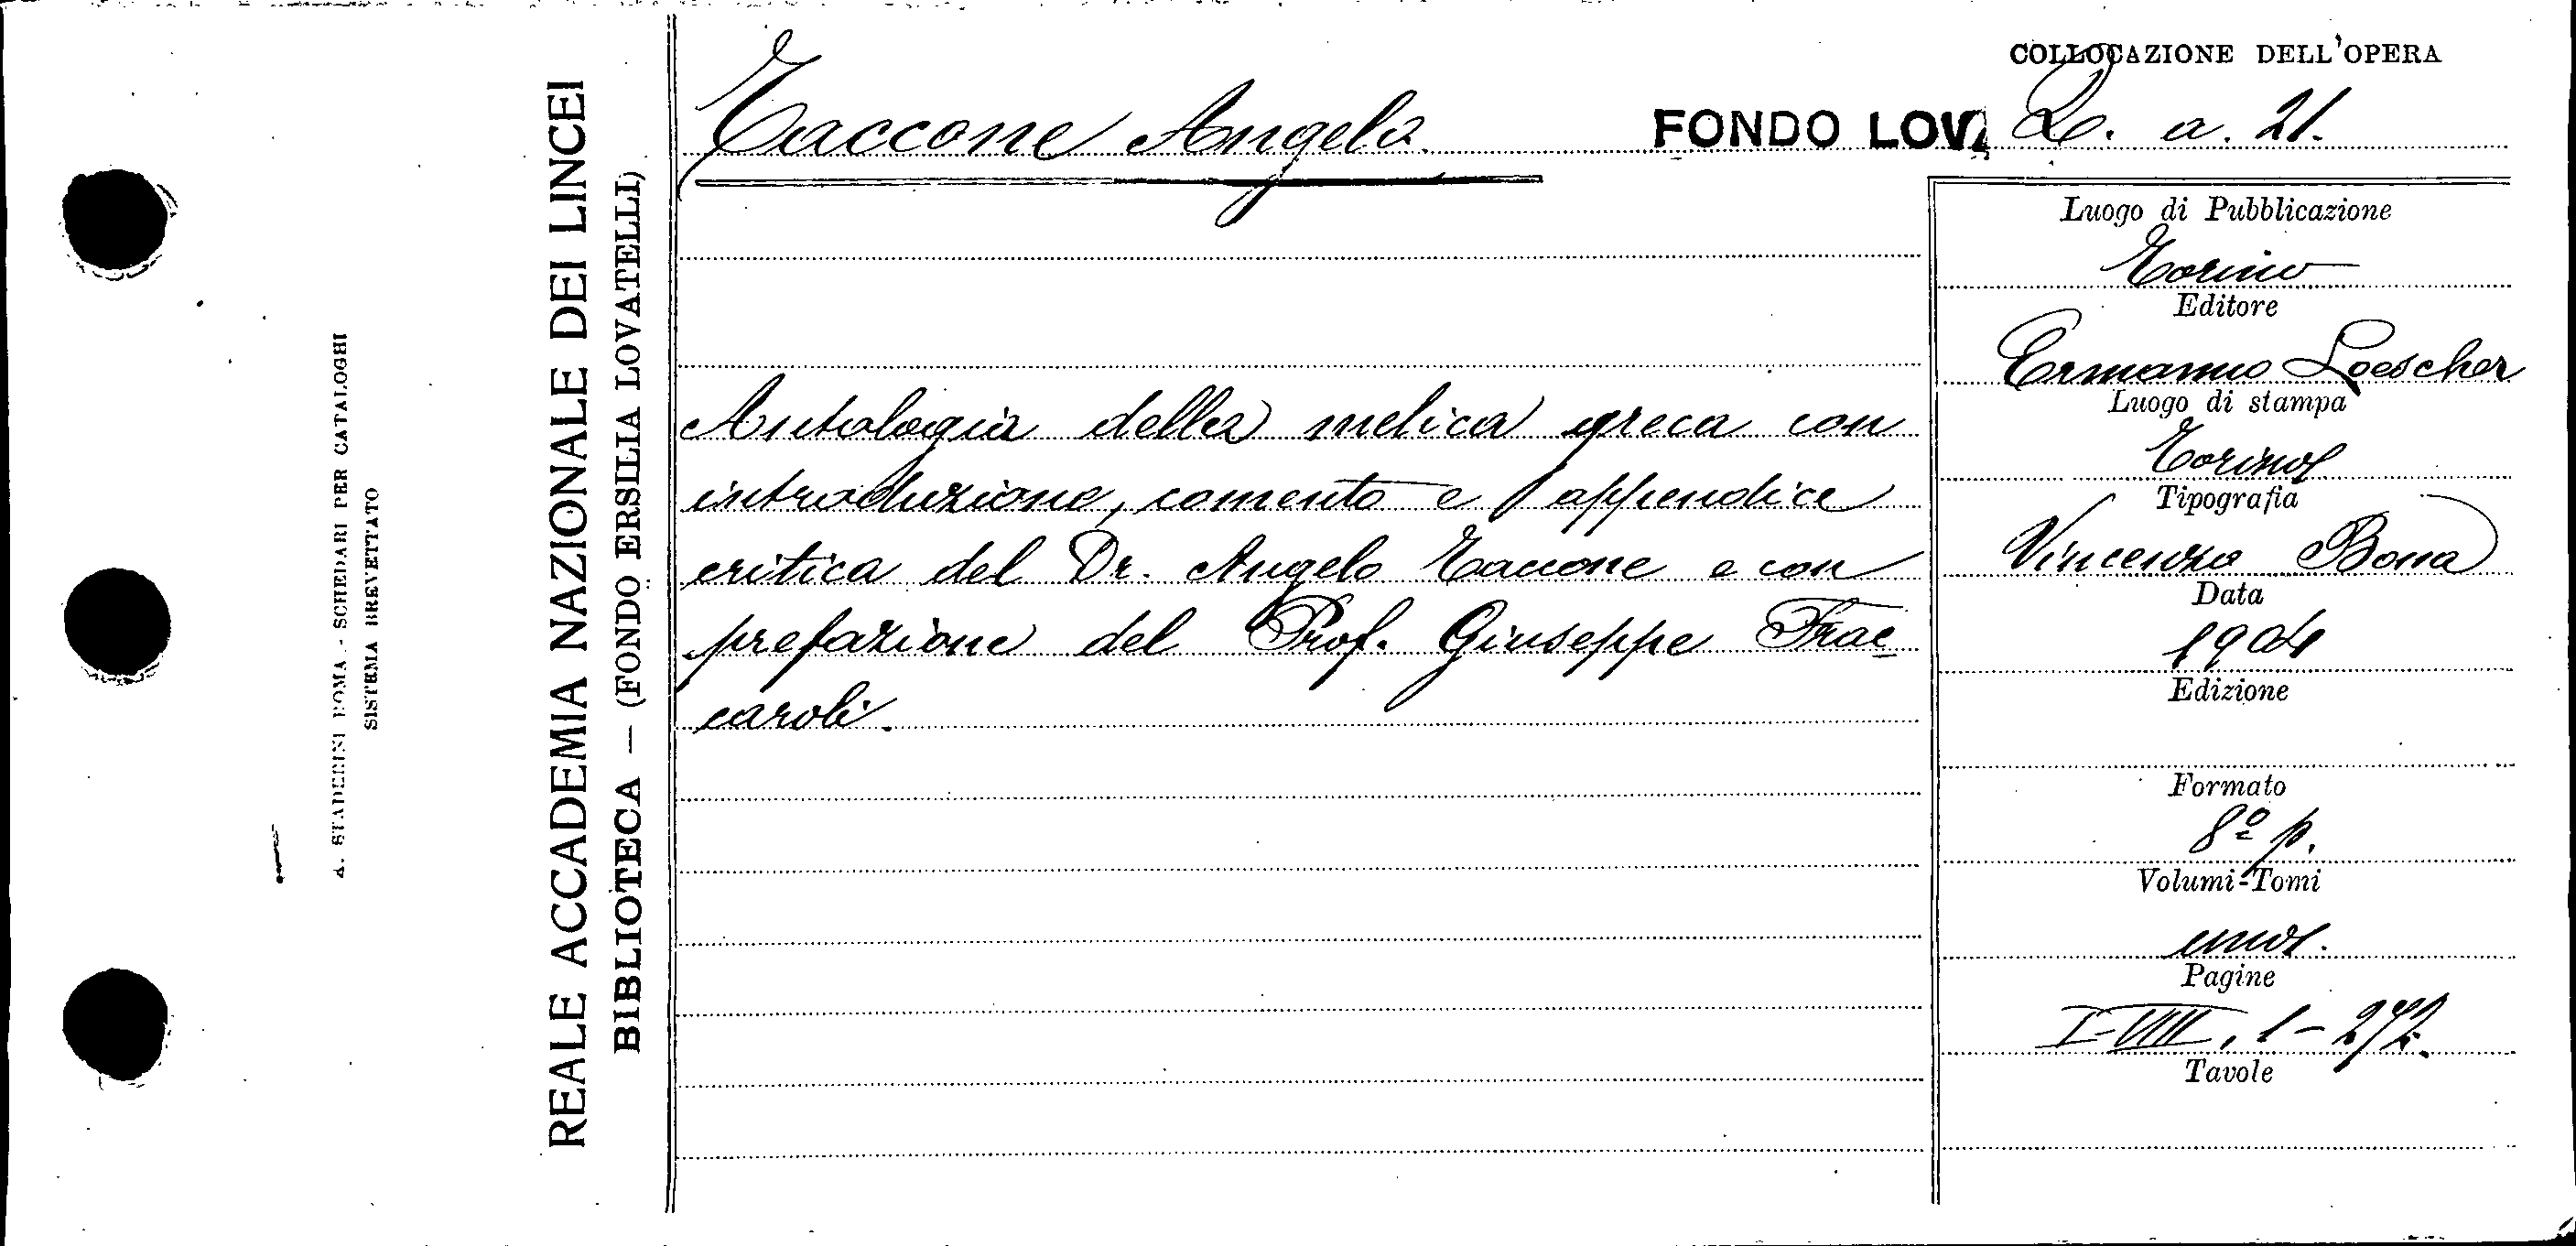 COLLOCAZIONE DELL'OPERA
Taccone Angelo
FONDO LOVA Q. a. 21.
Antologia della melica greca con
introduzione, comento e appendice
critica del Dr. Angelo Taccone e con
prefazione del Prof. Giuseppe Frac
caroli.
Luogo di Pubblicazione
Torino
Editore
Ermanno Loescher
Luogo di stampa
Torino
Tipografia
Vincenzo Bona
Data
1904
Edizione
Formato
8º p.
Volumi-Tomi
uno.
Pagine
I-VIII, 1-272.
Tavole
REALE ACCADEMIA NAZIONALE DEI LINCEI
BIBLIOTECA — (FONDO ERSILIA LOVATELLI)
A. STADERINI ROMA - SCHEDARI PER CATALOGHI
SISTEMA BREVETTATO